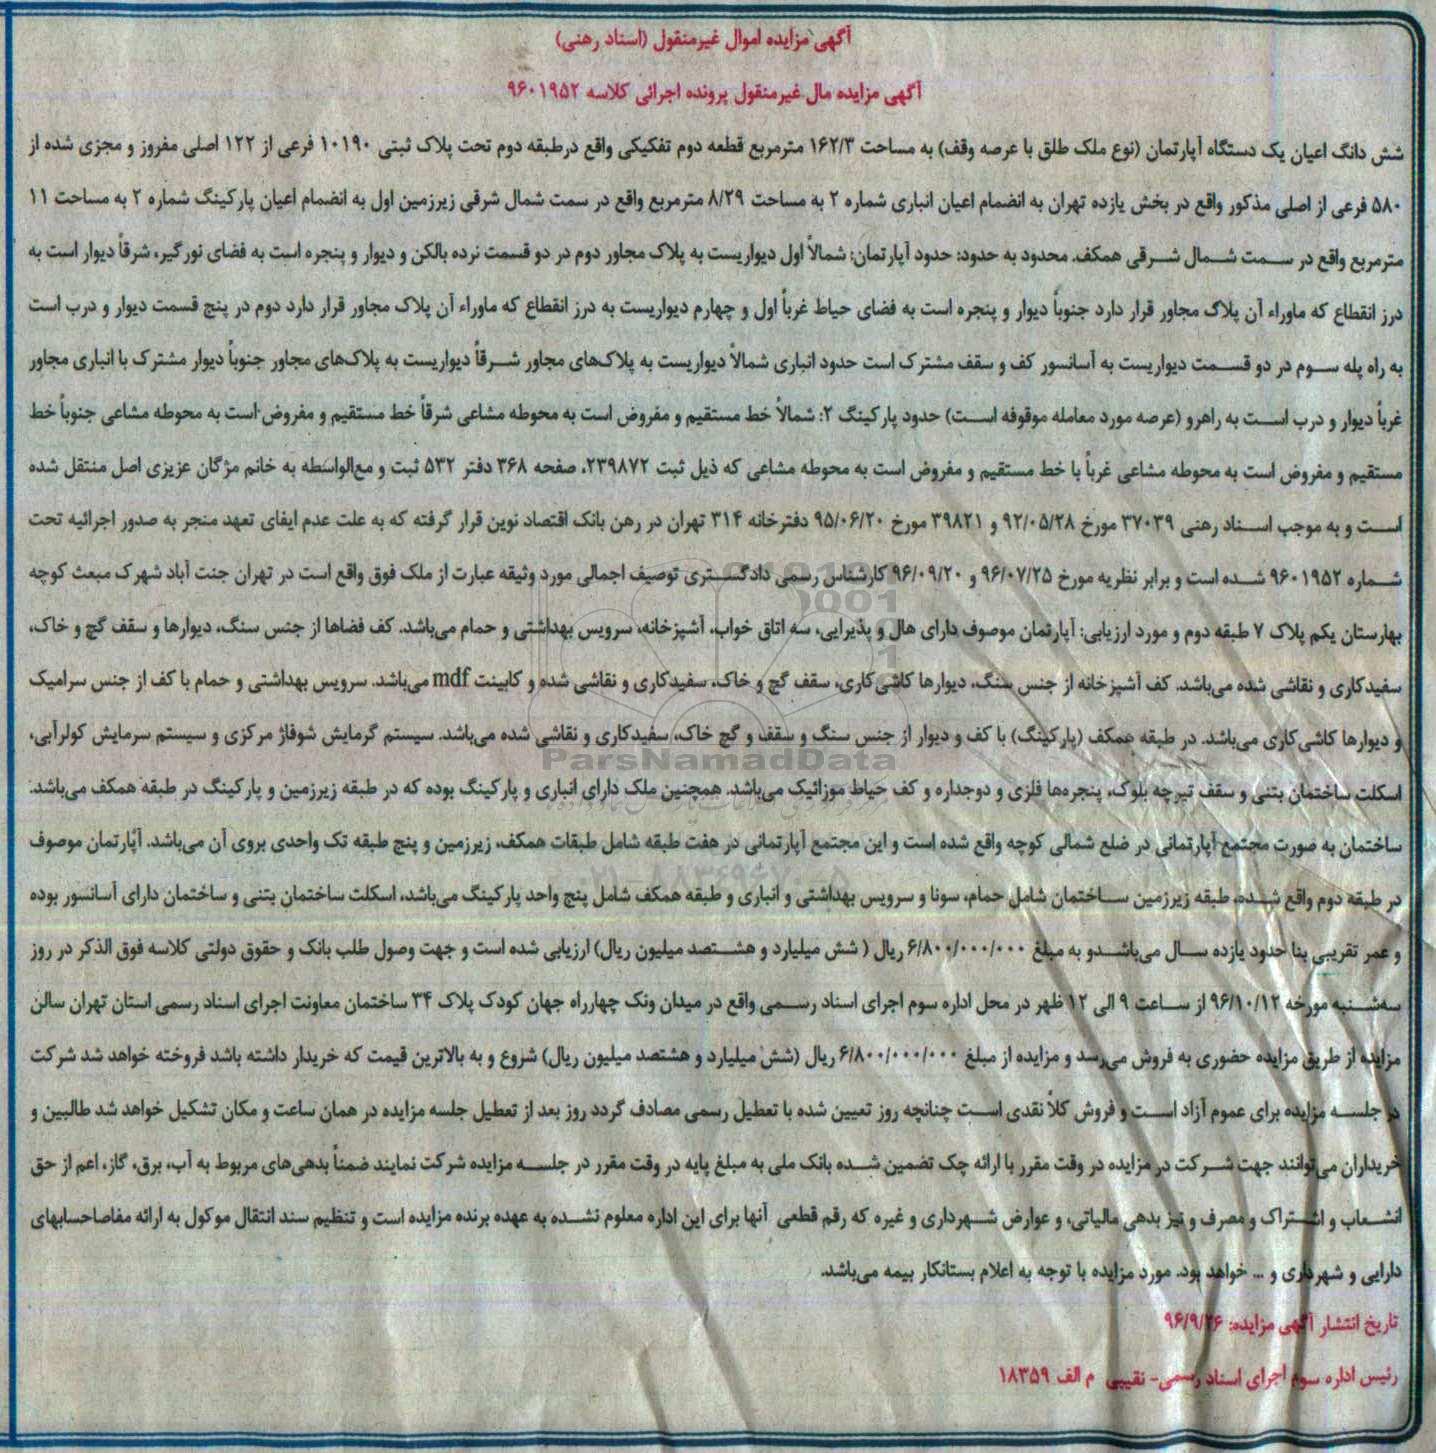 آگهی مزایده اموال غیرمنقول (اسناد رهنی)
آگهی مزایده مال غیرمنقول پرونده اجرائی کلاسه ۹۶۰۱۹۵۲
شش دانگ اعیان یک دستگاه آپارتمان (نوع ملک طلق با عرصه وقف) به مساحت ۱۶۲/۳ مترمربع قطعه دوم تفکیکی واقع درطبقه دوم تحت پلاک ثبتی ۱۰۱۹۰ فرعی از ۱۲۲ اصلی مفروز و مجزی شده از
۵۸۰ فرعی از اصلی مذکور واقع در بخش یازده تهران به انضمام اعیان انباری شماره ۲ به مساحت ۸/۲۹ مترمربع واقع در سمت شمال شرقی زیرزمین اول به انضمام اعیان پارکینگ شماره ۲ به مساحت ۱۱
مترمربع واقع در سمت شمال شرقی همکف. محدود به حدود: حدود آپارتمان: شمالاً اول دیواریست به پلاک مجاور دوم در دو قسمت نرده بالکن و دیوار و پنجره است به فضای نورگیر، شرقاً دیوار است به
درز انقطاع که ماوراء آن پلاک مجاور قرار دارد جنوباً دیوار و پنجره است به فضای حیاط غرباً اول و چهارم دیواریست به درز انقطاع که ماوراء آن پلاک مجاور قرار دارد دوم در پنج قسمت دیوار و درب است
به راه پله سوم در دو قسمت دیواریست به آسانسور کف و سقف مشترک است حدود انباری شمالاً دیواریست به پلاک‌های مجاور شرقاً دیواریست به پلاک‌های مجاور جنوباً دیوار مشترک با انباری مجاور
غرباً دیوار و درب است به راهرو (عرصه مورد معامله موقوفه است) حدود پارکینگ ۲: شمالاً خط مستقیم و مفروض است به محوطه مشاعی شرقاً خط مستقیم و مفروض است به محوطه مشاعی جنوباً خط
مستقیم و مفروض است به محوطه مشاعی غرباً با خط مستقیم و مفروض است به محوطه مشاعی که ذیل ثبت ۲۳۹۸۷۲، صفحه ۳۶۸ دفتر ۵۳۲ ثبت و مع‌الواسطه به خانم مژگان عزیزی اصل منتقل شده
است و به موجب اسناد رهنی ۳۷۰۳۹ مورخ ۹۲/۰۵/۲۸ و ۳۹۸۲۱ مورخ ۹۵/۰۶/۲۰ دفترخانه ۳۱۴ تهران در رهن بانک اقتصاد نوین قرار گرفته که به علت عدم ایفای تعهد منجر به صدور اجرائیه تحت
شماره ۹۶۰۱۹۵۲ شده است و برابر نظریه مورخ ۹۶/۰۷/۲۵ و ۹۶/۰۹/۲۰ کارشناس رسمی دادگستری توصیف اجمالی مورد وثیقه عبارت از ملک فوق واقع است در تهران جنت آباد شهرک مبعث کوچه
بهارستان یکم پلاک ۷ طبقه دوم و مورد ارزیابی: آپارتمان موصوف دارای هال و پذیرایی، سه اتاق خواب، آشپزخانه، سرویس بهداشتی و حمام می‌باشد. کف فضاها از جنس سنگ، دیوارها و سقف گچ و خاک،
سفیدکاری و نقاشی شده می‌باشد. کف آشپزخانه از جنس سنگ، دیوارها کاشی‌کاری، سقف گچ و خاک، سفیدکاری و نقاشی شده و کابینت mdf می‌باشد. سرویس بهداشتی و حمام با کف از جنس سرامیک
و دیوارها کاشی‌کاری می‌باشد. در طبقه همکف (پارکینگ) با کف و دیوار از جنس سنگ و سقف و گچ خاک، سفیدکاری و نقاشی شده می‌باشد. سیستم گرمایش شوفاژ مرکزی و سیستم سرمایش کولرآبی،
اسکلت ساختمان بتنی و سقف تیرچه بلوک، پنجره‌ها فلزی و دوجداره و کف حیاط موزائیک می‌باشد. همچنین ملک دارای انباری و پارکینگ بوده که در طبقه زیرزمین و پارکینگ در طبقه همکف می‌باشد.
ساختمان به صورت مجتمع آپارتمانی در ضلع شمالی کوچه واقع شده است و این مجتمع آپارتمانی در هفت طبقه شامل طبقات همکف، زیرزمین و پنج طبقه تک واحدی بروی آن می‌باشد. آپارتمان موصوف
در طبقه دوم واقع شده، طبقه زیرزمین ساختمان شامل حمام، سونا و سرویس بهداشتی و انباری و طبقه همکف شامل پنج واحد پارکینگ می‌باشد، اسکلت ساختمان بتنی و ساختمان دارای آسانسور بوده
و عمر تقریبی بنا حدود یازده سال می‌باشدو به مبلغ ۶/۸۰۰/۰۰۰/۰۰۰ ریال ( شش میلیارد و هشتصد میلیون ریال) ارزیابی شده است و جهت وصول طلب بانک و حقوق دولتی کلاسه فوق الذکر در روز
سه‌شنبه مورخه ۹۶/۱۰/۱۲ از ساعت ۹ الی ۱۲ ظهر در محل اداره سوم اجرای اسناد رسمی واقع در میدان ونک چهارراه جهان کودک پلاک ۳۴ ساختمان معاونت اجرای اسناد رسمی استان تهران سالن
مزایده از طریق مزایده حضوری به فروش می‌رسد و مزایده از مبلغ ۶/۸۰۰/۰۰۰/۰۰۰ ریال (شش میلیارد و هشتصد میلیون ریال) شروع و به بالاترین قیمت که خریدار داشته باشد فروخته خواهد شد شرکت
در جلسه مزایده برای عموم آزاد است و فروش کلاً نقدی است چنانچه روز تعیین شده با تعطیل رسمی مصادف گردد روز بعد از تعطیل جلسه مزایده در همان ساعت و مکان تشکیل خواهد شد طالبین و
خریداران می‌توانند جهت شرکت در مزایده در وقت مقرر با ارائه چک تضمین شده بانک ملی به مبلغ پایه در وقت مقرر در جلسه مزایده شرکت نمایند ضمناً بدهی‌های مربوط به آب، برق، گاز، اعم از حق
انشعاب و اشتراک و مصرف و نیز بدهی مالیاتی، و عوارض شهرداری و غیره که رقم قطعی آنها برای این اداره معلوم نشده به عهده برنده مزایده است و تنظیم سند انتقال موکول به ارائه مفاصاحسابهای
دارایی و شهرداری و ... خواهد بود. مورد مزایده با توجه به اعلام بستانکار بیمه می‌باشد.
تاریخ انتشار آگهی مزایده: ۹۶/۹/۲۶
رئیس اداره سوم اجرای اسناد رسمی- نقیبی م الف ۱۸۳۵۹
ParsNamadData